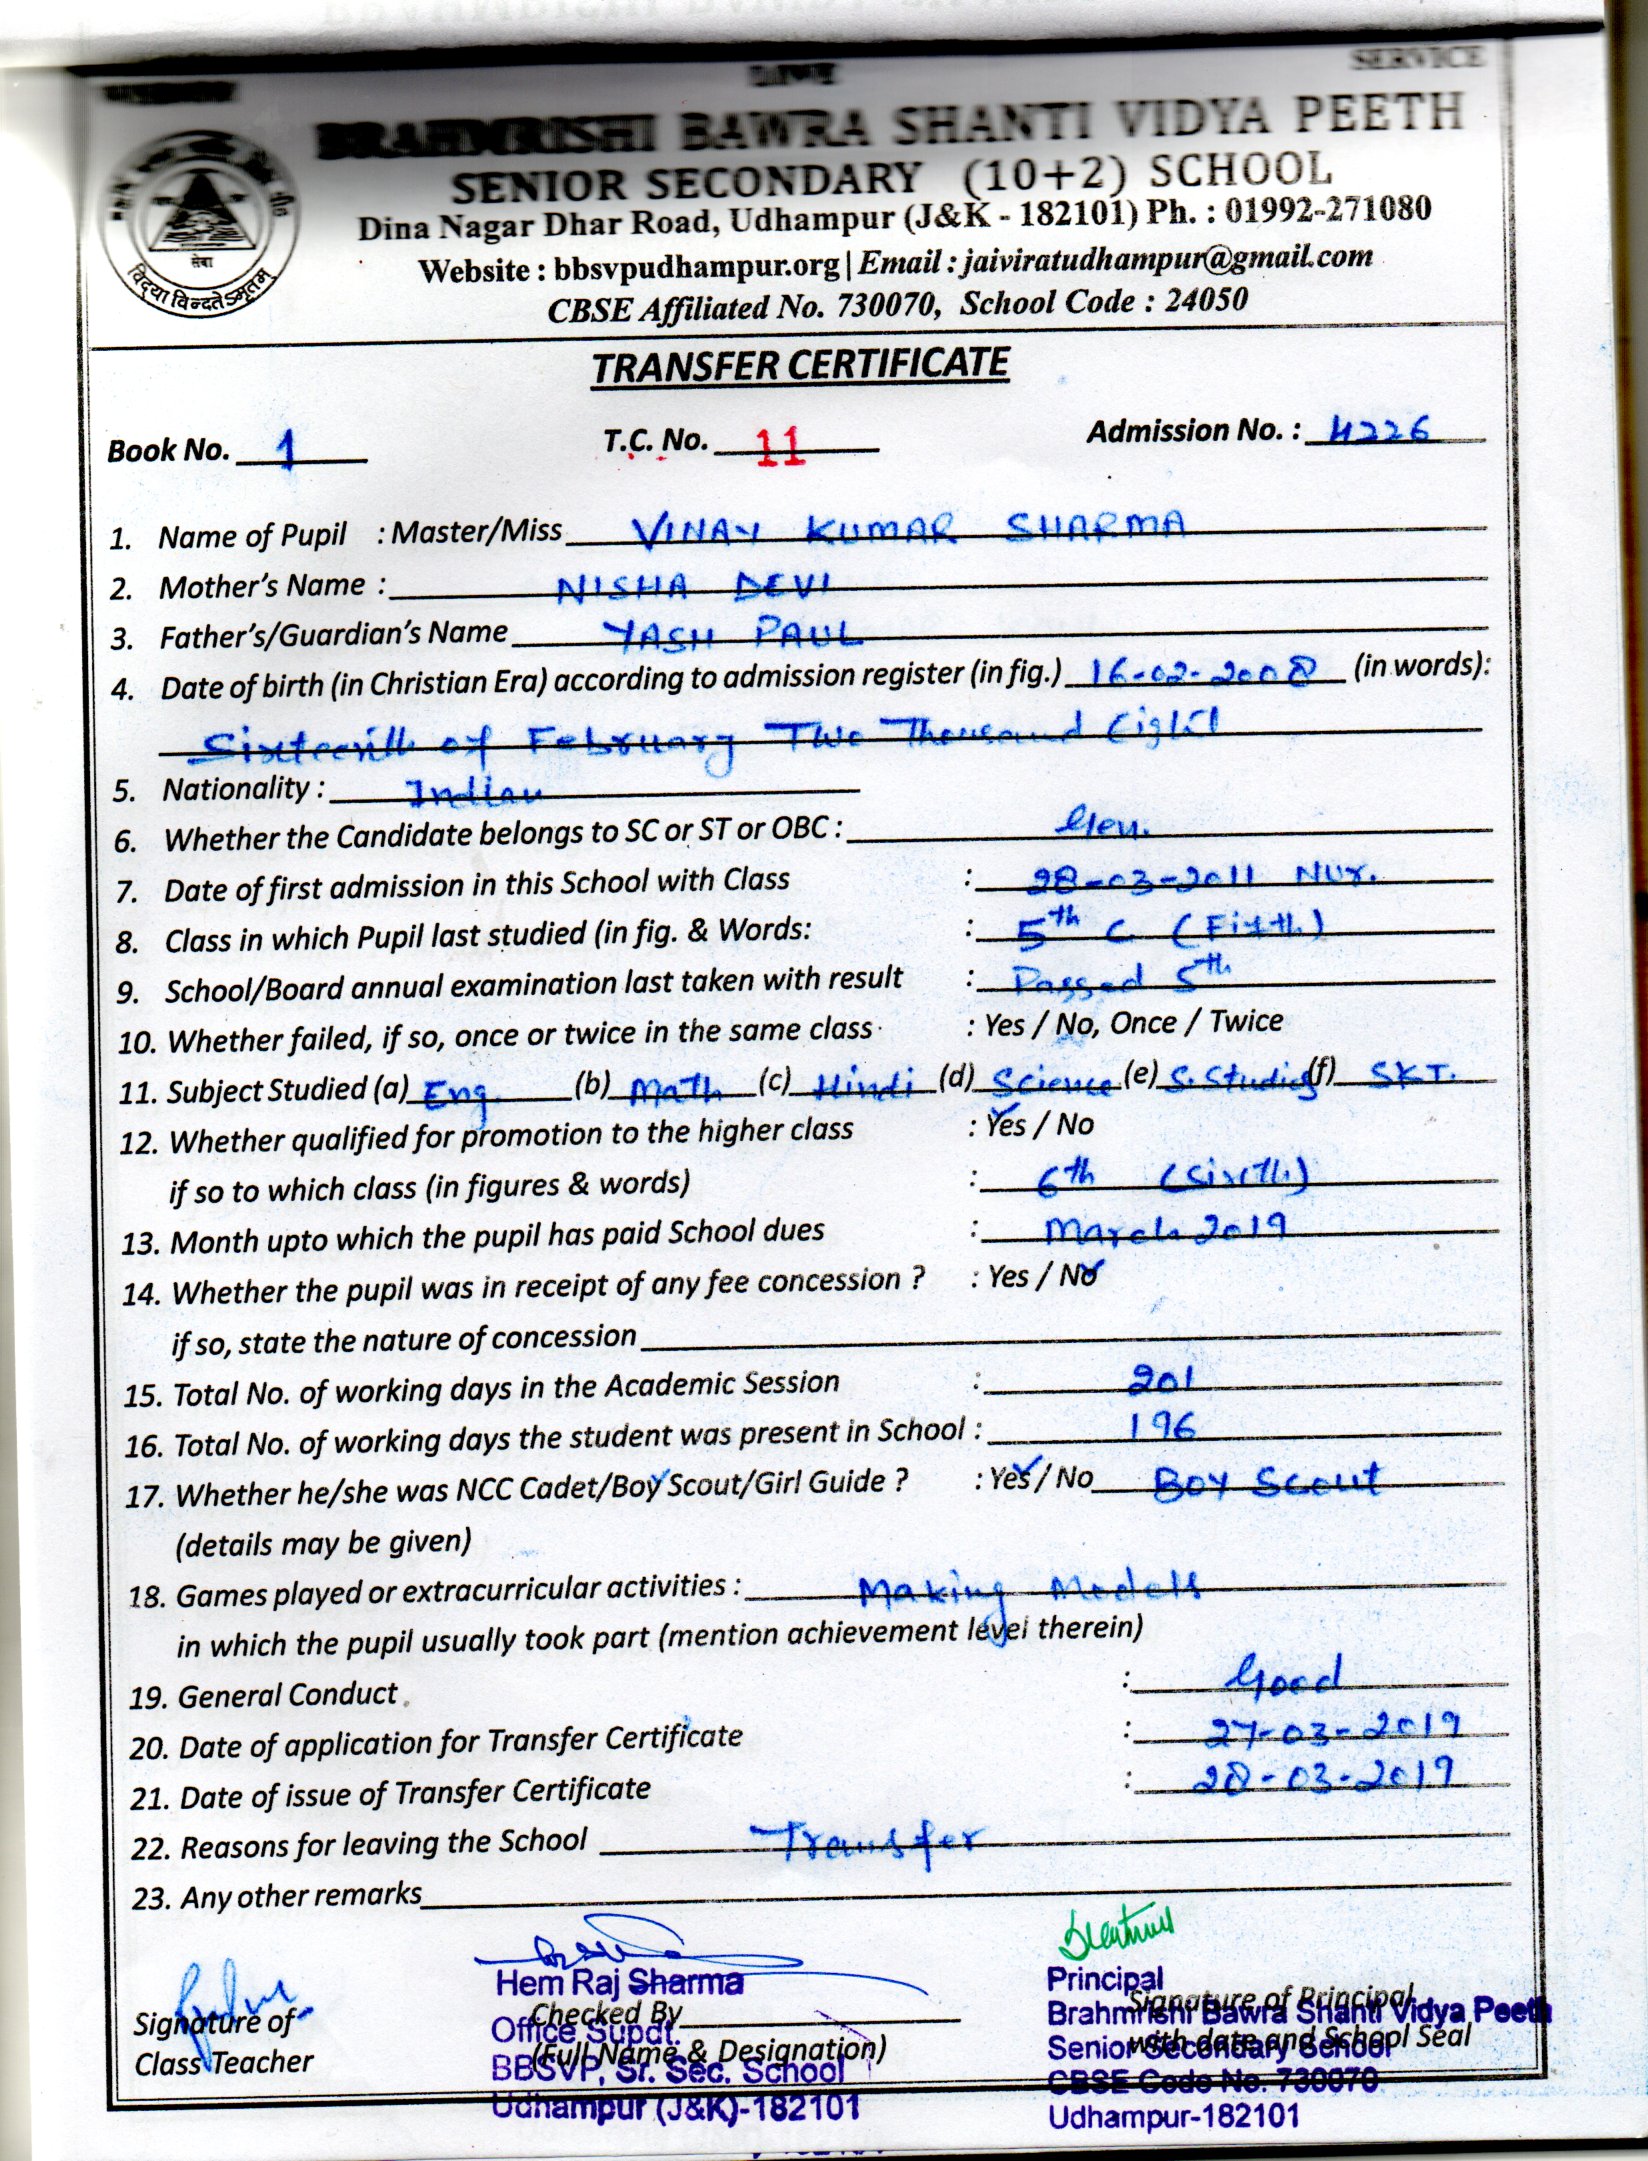 LOVE
SERVICE
BRAHMRISHI BAWRA SHANTI VIDYA PEETH
SENIOR SECONDARY (10+2) SCHOOL
Dina Nagar Dhar Road, Udhampur (J&K - 182101) Ph. : 01992-271080
Website : bbsvpudhampur.org | Email : jaiviratudhampur@gmail.com
CBSE Affiliated No. 730070, School Code : 24050
सेवा
विद्या विन्दतेऽमृतम्
TRANSFER CERTIFICATE
Book No. 1 T.C. No. 11 Admission No. : 4226
1. Name of Pupil : Master/Miss VINAY KUMAR SHARMA
2. Mother's Name : NISHA DEVI
3. Father's/Guardian's Name YASH PAUL
4. Date of birth (in Christian Era) according to admission register (in fig.) 16-02-2008 (in words):
Sixteenth of February Two Thousand Eight
5. Nationality : Indian
6. Whether the Candidate belongs to SC or ST or OBC : Gen.
7. Date of first admission in this School with Class : 28-03-2011 Nur.
8. Class in which Pupil last studied (in fig. & Words: : 5th C (Fifth)
9. School/Board annual examination last taken with result : Passed 5th
10. Whether failed, if so, once or twice in the same class : Yes / No, Once / Twice
11. Subject Studied (a) Eng. (b) Math (c) Hindi (d) Science (e) S. Studies (f) SKT.
12. Whether qualified for promotion to the higher class : Yes / No
if so to which class (in figures & words) : 6th (Sixth)
13. Month upto which the pupil has paid School dues : March 2019
14. Whether the pupil was in receipt of any fee concession ? : Yes / No
if so, state the nature of concession
15. Total No. of working days in the Academic Session : 201
16. Total No. of working days the student was present in School : 196
17. Whether he/she was NCC Cadet/Boy Scout/Girl Guide ? : Yes / No Boy Scout
(details may be given)
18. Games played or extracurricular activities : Making Models
in which the pupil usually took part (mention achievement level therein)
19. General Conduct : Good
20. Date of application for Transfer Certificate : 27-03-2019
21. Date of issue of Transfer Certificate : 28-03-2019
22. Reasons for leaving the School Transfer
23. Any other remarks
Signature of
Class Teacher
Hem Raj Sharma
Checked By
Office Supdt.
(Full Name & Designation)
BBSVP, Sr. Sec. School
Udhampur (J&K)-182101
Principal
Signature of Principal
Brahmrishi Bawra Shanti Vidya Peeth
with date and School Seal
Senior Secondary School
CBSE Code No. 730070
Udhampur-182101